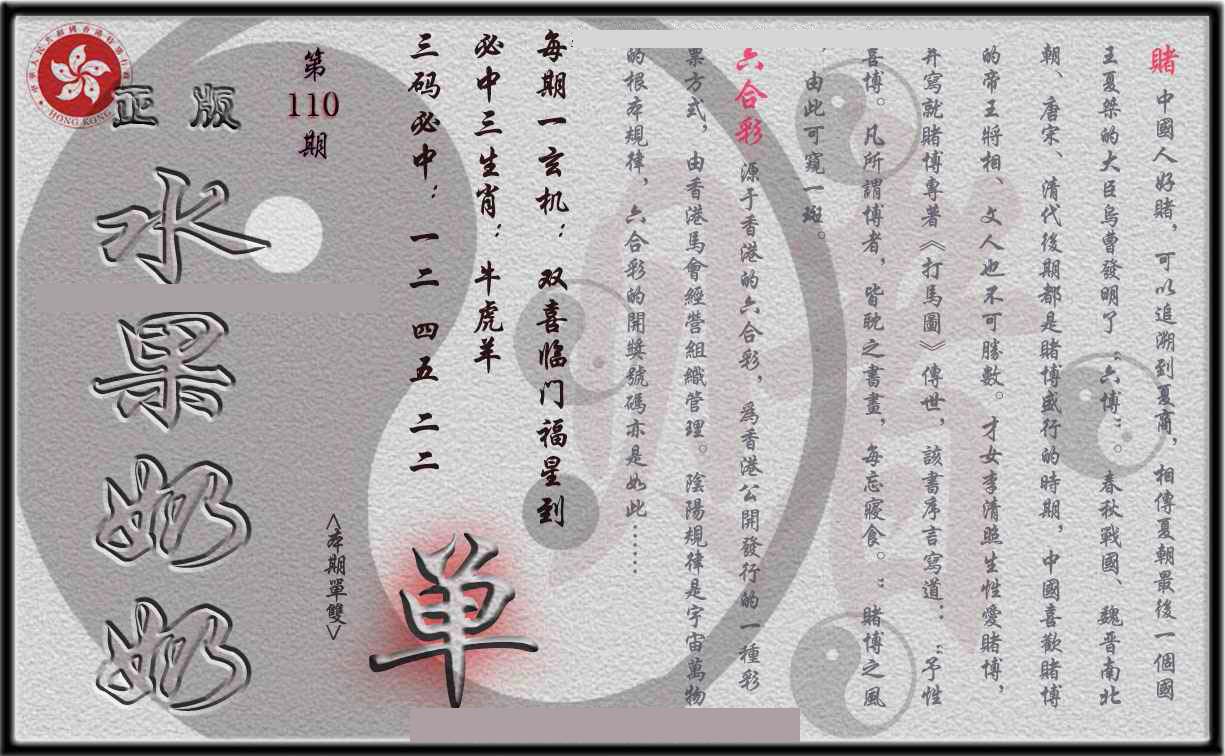 賭 中國人好賭，可以追溯到夏商，相傳夏朝最後一個國
王夏桀的大臣烏曹發明了“六博”。春秋戰國、魏晋南北
朝、唐宋、清代後期都是賭博盛行的時期，中國喜歡賭博
的帝王將相、文人也不可勝數。才女李清照生性愛賭博，
并寫就賭博專著《打馬圖》傳世，該書序言寫道：“予性
喜博。凡所謂博者，皆耽之晝，每忘寢食。”賭博之風
，由此可窺一斑。
六合彩 源于香港的六合彩，爲香港公開發行的一種彩
票方式，由香港馬會經營組織管理。陰陽規律是宇宙萬物
的根本規律，六合彩的開獎號碼亦是如此……
每期一玄机：双喜临门福星到
必中三生肖：牛虎羊
三码必中：一二 四五 二二
第
110
期
<本期單雙>
单
正版
水果奶奶
HONG KONG